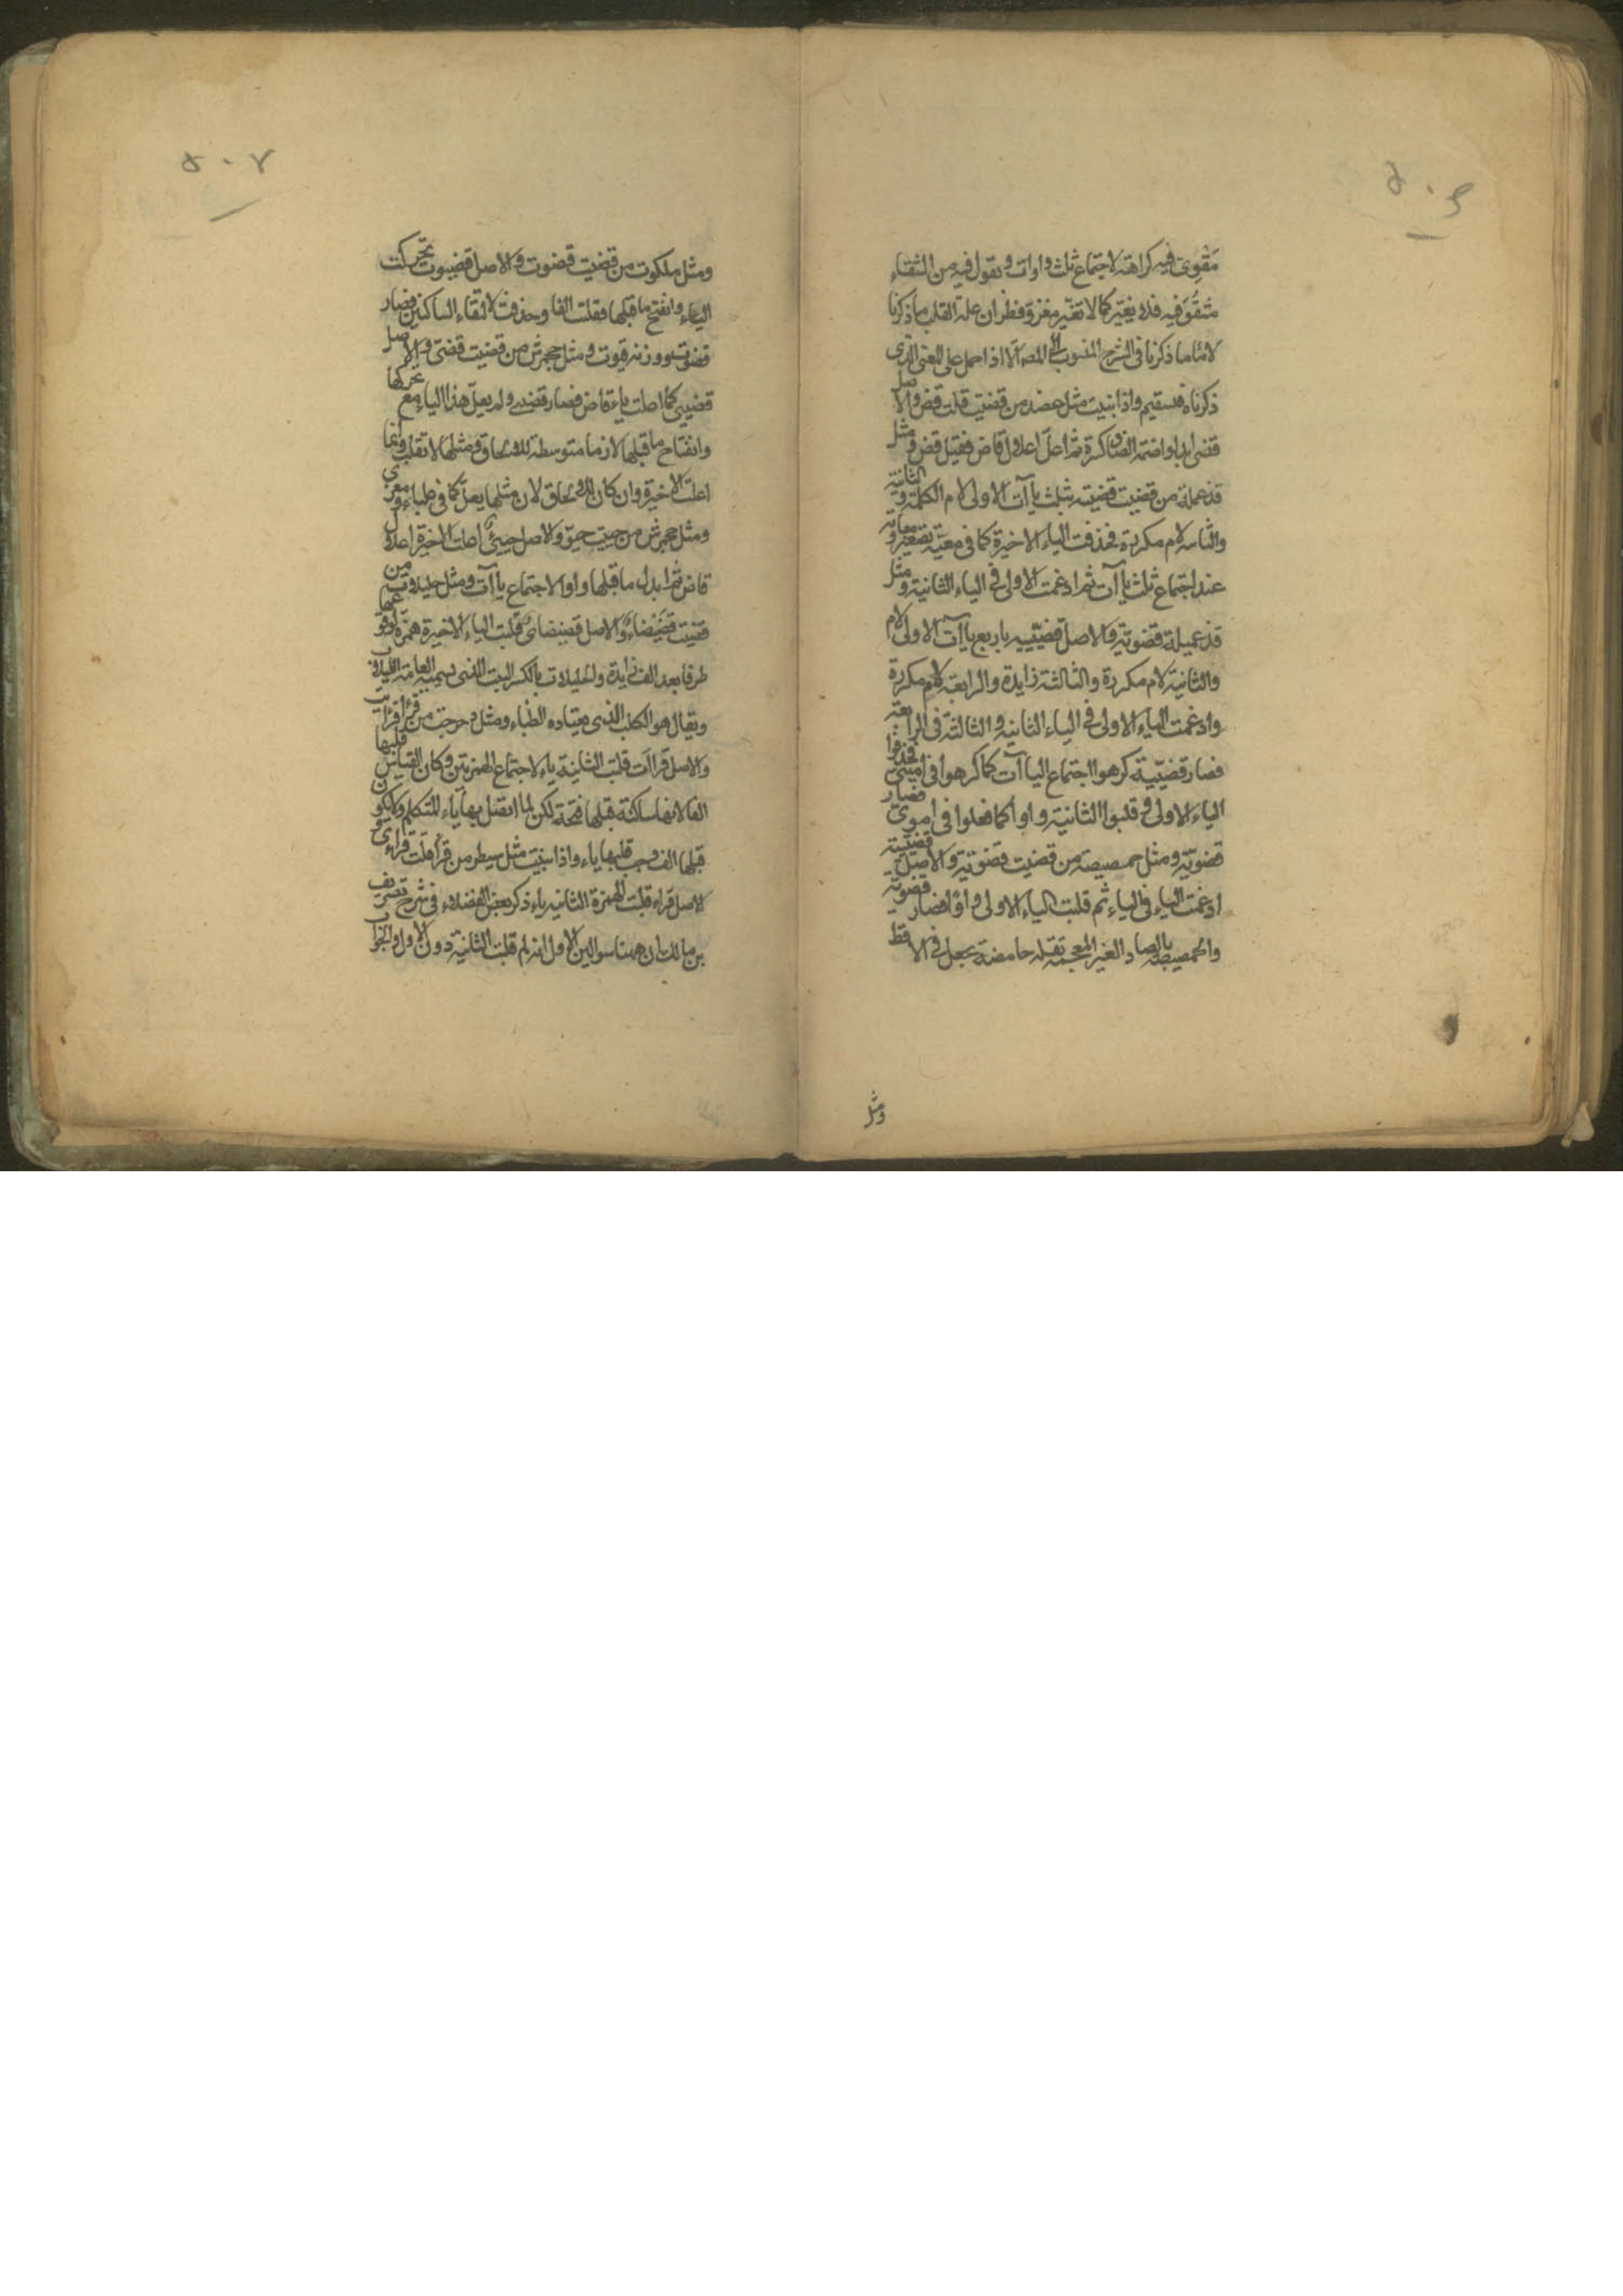 مَقْوِىّ فيه كراهة لاجتماع ثلث واوات و تقول فيه من الشقاء
مشقوّ فيه فلا يغيّر كما لا تغيّر مغزوّ فظران علة القلب ما ذكرنا
لا مّا ما ذكرنا فى الشرح المنسوب الى المصر الا اذا حمل على المعنى الذى
ذكرناه فمستقيم واذا بنيت مثل عضد من قضيت قلت قض والاصل
قضى ابدلوا ضمة الضاد كسرة ثم اعلّ اعلال قاض فقيل قض ومثل
قذعملة من قضيت قضيّة بثلث ياآت الاولى لام الكلمة والثانية
والثالثة لام مكررة فحذفت الياء الاخيرة كما فى معيّة تصغير معاوية
عند اجتماع ثلث ياآت ثم ادغمت الاولى فى الياء الثانية ومثل
قذعميلة قضويّة والاصل قضيّييه باربع ياآت الاولى لام
والثانية لام مكررة والثالثة زايدة والرابعة لام مكررة
وادغمت الياء الاولى فى الياء الثانية والثالثة فى الرابعة
فصار قضيّيّة كرهوا اجتماع الياآت كما كرهوا فى اميّىّ فحذفوا
الياء الاولى و قلبوا الثانية واوا كما فعلوا فى اموىّ فصار
قضويّة ومثل حمصيصة من قضيت قضويّة والاصل قضييية
ادغمت الياء فى الياء ثم قلبت الياء الاولى واوًا فصار قضويّة
والحمصيصة بالصاد الغير المعجمة بقلة حامضة تجعل فى الاقط
ومثل
ومثل ملكوت من قضيت قضوت والاصل قضيوت تحركت
الياء وانفتح ما قبلها فقلبت الفا وحذفت لالتقاء الساكنين فصار
قضوت ووزنه فعوت ومثل جحمرش من قضيت قضىّ والاصل
قضييى كما اعلت ياء قاض فصار قضيى ولم يعلّ هذا الياء مع تحركها
وانفتاح ما قبلها لانها متوسطة للالحاق ومثلها لا تقلب وانما
اعلت الاخيرة وان كان للالحاق لان مثلها يعلّ كما فى علباء ومعزى
ومثل جحمرش من حييت حيّو والاصل حييىٌ اعلت الاخيرة اعلال
قاض ثم ابدل ما قبلها واوا لاجتماع ياآت ومثل حلبلاب من
قضيت قضيضاء والاصل قضيضاى قلبت الياء الاخيرة همزة لوقوعها
طرفا بعد الف زايدة والحلبلاب بالكسر النبت الذى تسميه العامة اللبلاب
ويقال هو الحلب الذى يعتاده الظباء ومثل دحرجت من قرأ قرأيت
والاصل قرأأت قلبت الثانية ياء لاجتماع الهمزتين وكان القياس قلبها
الفا لانها ساكنة قبلها فتحة لكن لما اتصل بها ياء المتكلم ولا يكون
قبلها الف وجب قلبها ياء واذا بنيت مثل سبطر من قرأ قلت قرأى و
الاصل قرأء قلبت الهمزة الثانية ياء ذكر بعض الفضلاء فى شرح تصريف
بن مالك ان ههنا سوالين الاول انه لم قلبت الثانية دون الاولى والجواب